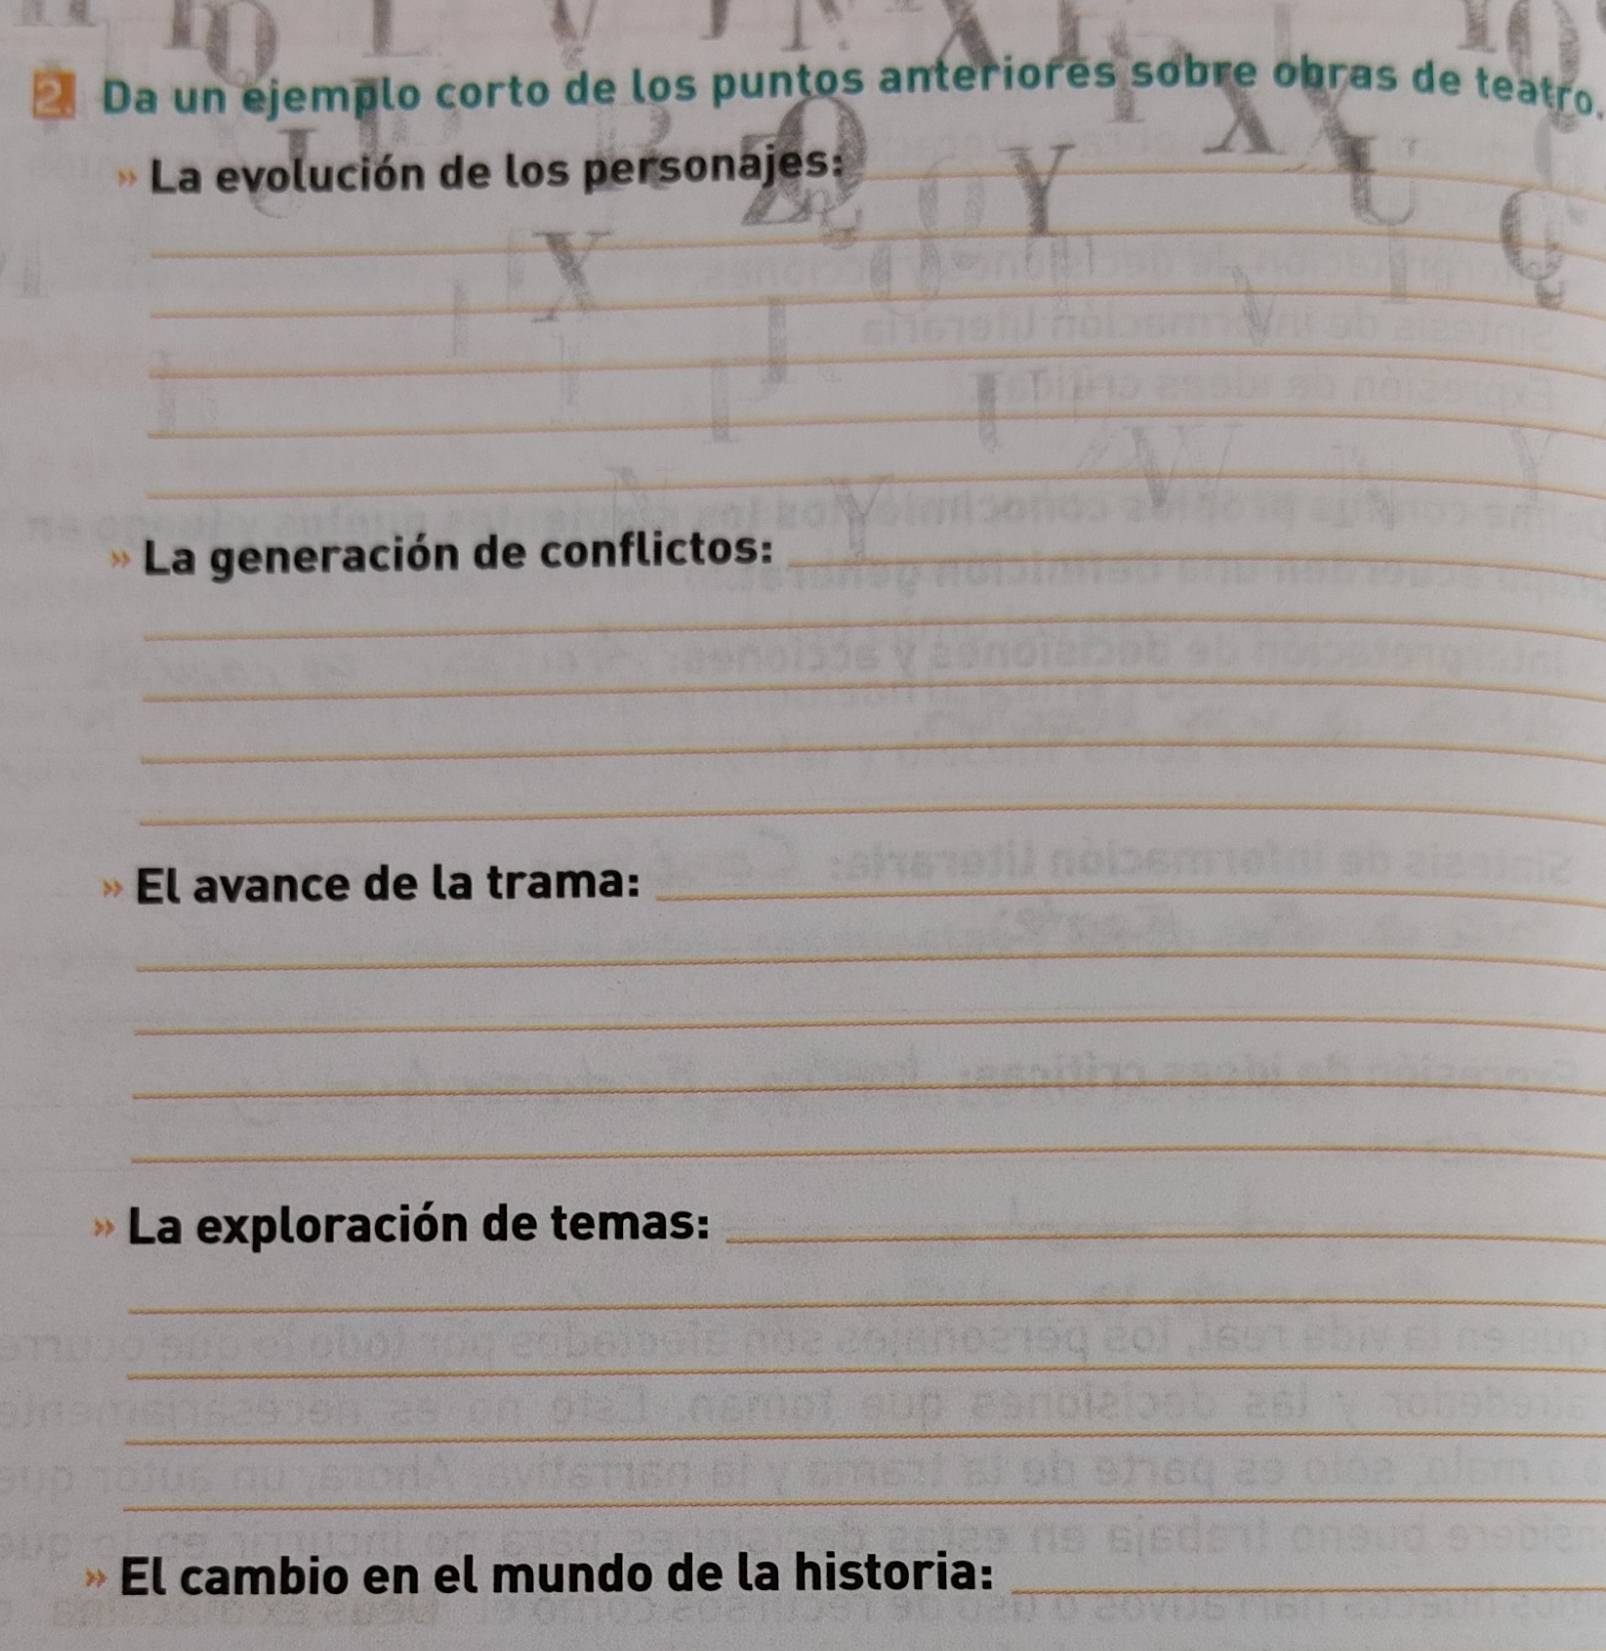 2. Da un ejemplo corto de los puntos anteriores sobre obras de teatro.
» La evolución de los personajes:
» La generación de conflictos:
» El avance de la trama:
» La exploración de temas:
» El cambio en el mundo de la historia: